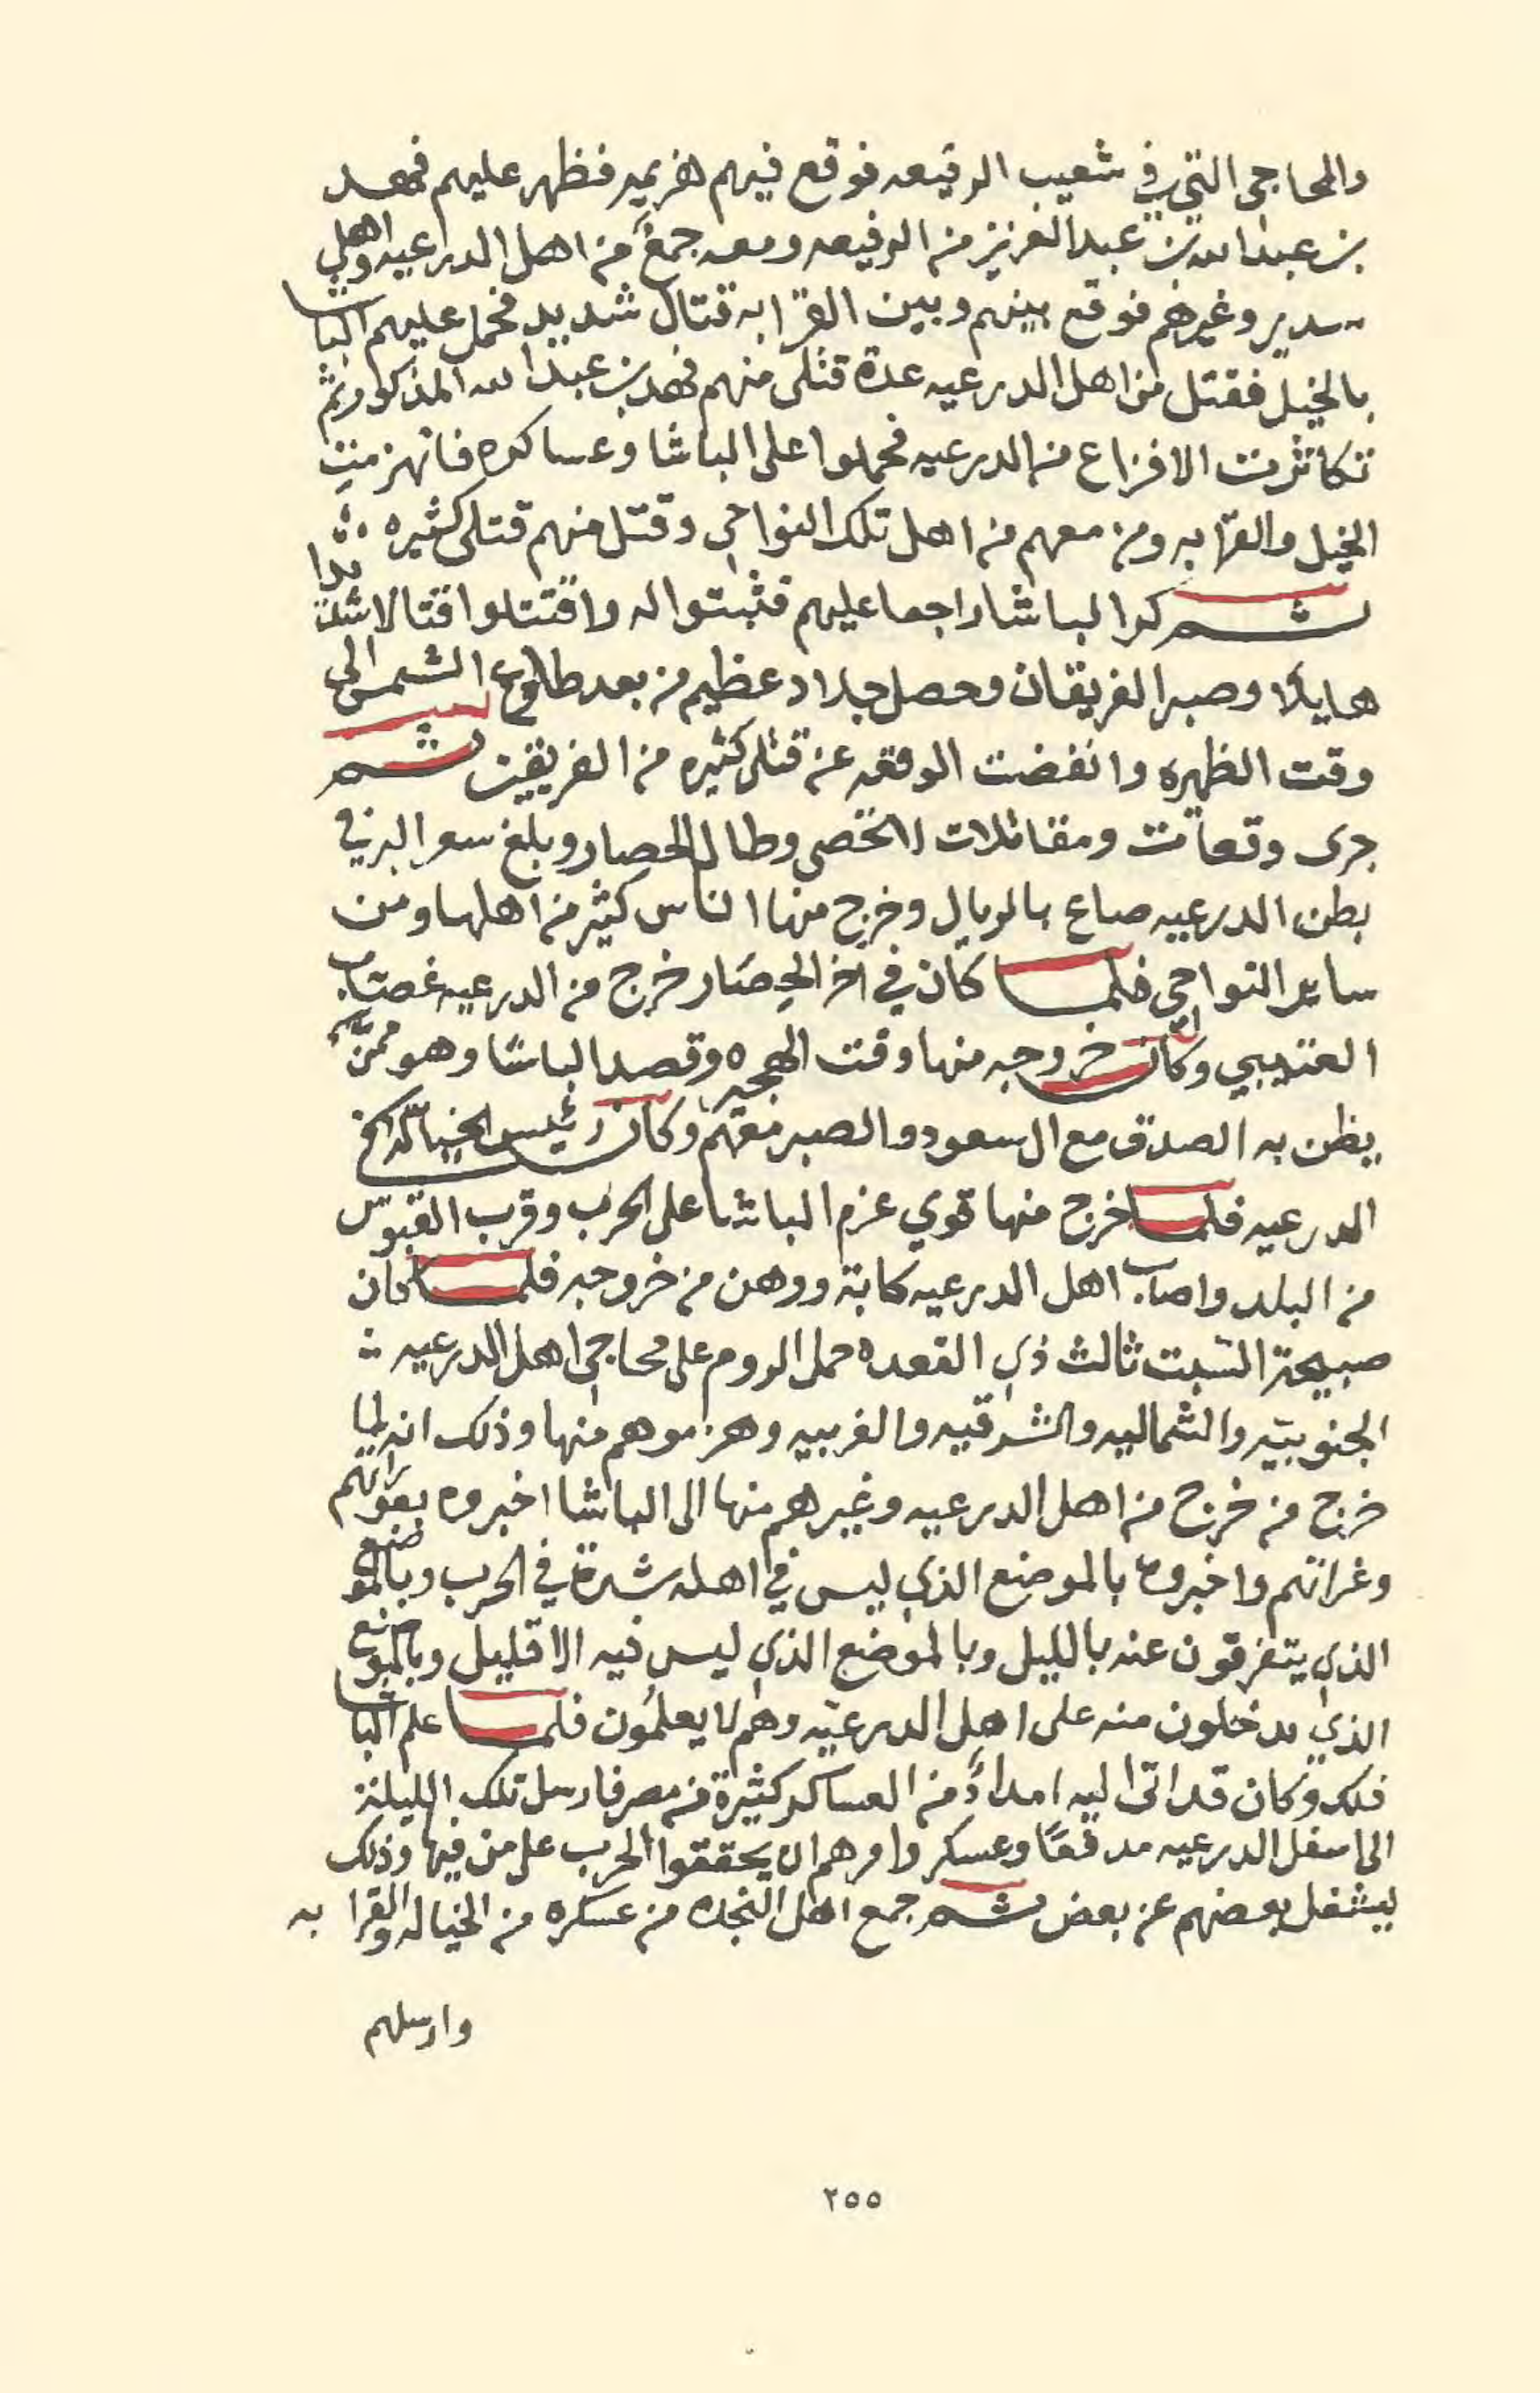 والمحاجي التي في شعيب الرفيعه فوقع فيهم هزيمه فظهر عليهم فهد
بن عبدالله بن عبدالعزيز من الرفيعه ومعه جمعٌ من اهل الدرعيه واهل
سدير وغيرهم فوقع بينهم وبين القرّابه قتال شديد فحمل عليهم الباشا
بالخيل فقتل من اهل الدرعيه عدة قتلى منهم فهد بن عبدالله المذكور ثم
تكاثرت الافزاع من الدرعيه فحملوا على الباشا وعساكره فانهزمت
الخيل والقرّابه ومن معهم من اهل تلك النواحي وقتل منهم قتلى كثيره
ثم كرّ الباشا راجعا عليهم فثبتوا له واقتتلوا قتالا شديدا
هايلا وصبر الفريقان وحصل جلاد عظيم من بعد طلوع الشمس الى
وقت الظهيره وانفضت الوقعه عن قتلى كثيره من الفريقين ثم
جرى وقعات ومقاتلات لا تحصى وطال الحصار وبلغ سعر البر في
بطن الدرعيه صاع بالريال وخرج منها اناس كثير من اهلها ومن
ساير النواحي فلما كان في آخر الحصار خرج من الدرعيه غصاب
العتيبي وكان خروجه منها وقت الهجيره وقصد الباشا وهو ممن
يظن به الصدق مع ال سعود والصبر معهم وكان رئيس الخياله في
الدرعيه فلما خرج منها قوي عزم الباشا على الحرب وقرب القبوس
من البلد واصاب اهل الدرعيه كابة ووهن من خروجه فلما كان
صبيحة السبت ثالث ذي القعده حمل الروم على محاجي اهل الدرعيه
الجنوبيه والشماليه والشرقيه والغربيه وهزموهم منها وذلك انه لما
خرج من خرج من اهل الدرعيه وغيرهم منها الى الباشا اخبروه بعوراتهم
وغراتهم واخبروه بالموضع الذي ليس في اهله شدة في الحرب وبالموضع
الذي يتفرقون عنه بالليل وبالموضع الذي ليس فيه الا قليل وبالموضع
الذي يدخلون منه على اهل الدرعيه وهم لا يعلمون فلما علم الباشا
ذلك وكان قد اتى اليه امدادٌ من العساكر كثيرة من مصر فارسل تلك الليلة
الى اسفل الدرعيه مدفعًا وعسكر وامرهم ان يحققوا الحرب على من فيها وذلك
ليشغل بعضهم عن بعض ثم جمع اهل النجده من عسكره من الخياله والقرابه
وارسلهم
٢٥٥